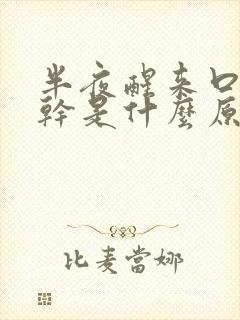 半夜醒來口
幹是什麼原
比麦當娜